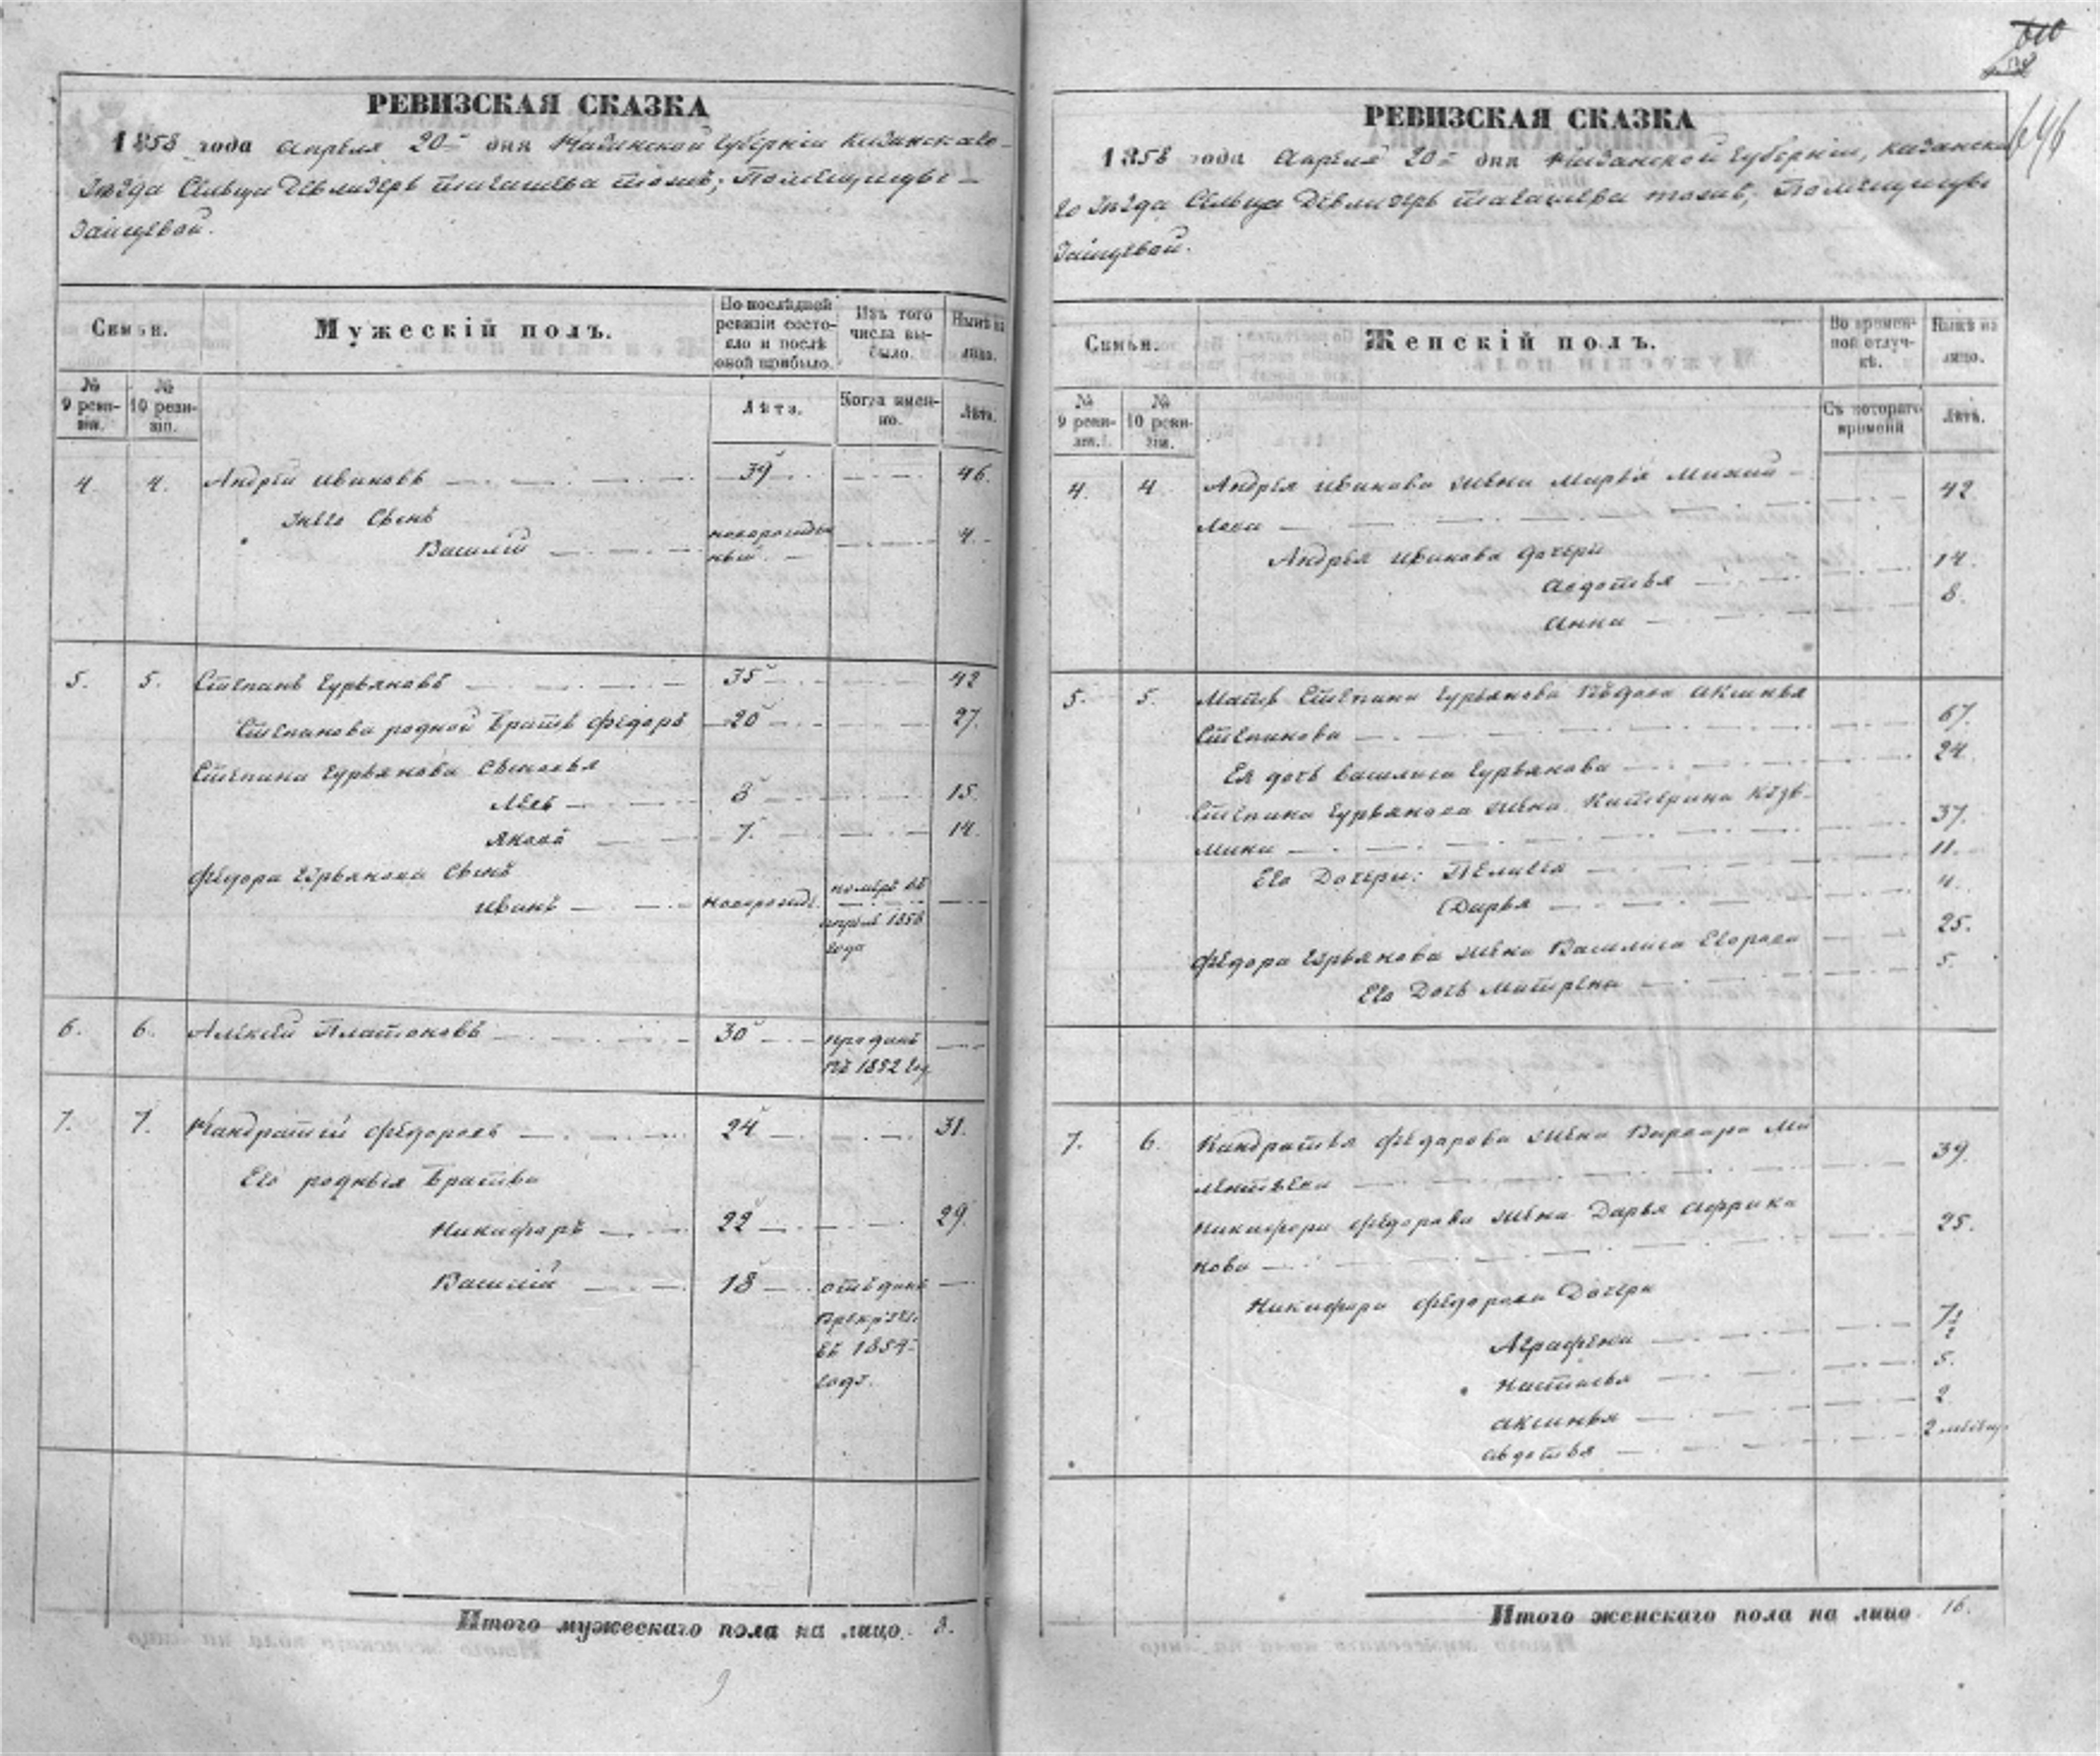 РЕВИЗСКАЯ СКАЗКА
1858 года апреля 20 дня Казанской Губернiи Казанскаго
Уезда Сельца тожъ; Помещицы
Зайцевой.
Семьи.
Мужескiй полъ.
По послѣдней ревизiи состояло и послѣ оной прибыло.
Изъ того числа выбыло.
Нынѣ на лицо.
№ 9 ревизiи.
№ 10 ревизiи.
Лѣта.
Когда именно.
Лѣта.
4. 4. Андрей Ивановъ 39 46.
Унего Сынъ
Василiй новорожденный. 4.
5. 5. Степанъ Гурьяновъ 35 42
Степанова родной братъ Федоръ 20 27.
Степана Гурьянова Сыновья
Левъ 8 15.
Яковъ 7. 14.
Федора Гурьянова Сынъ
Иванъ новорожд. померъ въ
апреле 1856
года
6. 6. Алексей Платоновъ 30 проданъ
въ 1852 год
7. 7. Кандратiй Федоровъ 24 31.
Его родныя братья
Никифоръ 22 29.
Василiй 18 отъданъ
въ 1854
году.
Итого мужескаго пола на лицо. 8.
9
610
646
РЕВИЗСКАЯ СКАЗКА
1858 года Апреля 20 дня Казанской Губернiи, Казанска
го Уезда Сельца тожъ, Помещицы
Зайцевой.
Семьи.
Женскiй полъ.
Во временной отлучкѣ.
Нынѣ на лицо.
№ 9 ревизiи.
№ 10 ревизiи.
Съ котораго времени
Лѣта.
4. 4 Андрея Иванова жена Марья Михай
лова 42
Андрея Иванова дочери
Авдотья 14.
Анна 8.
5. 5. Мать Степана Гурьянова вдова Аксинья
Степанова 67.
Ея дочь Василиса Гурьянова 24.
Степана Гурьянова жена Катерина Кузь
мина 37.
Его Дочери: Пелагея 11.
Дарья 4.
Федора Гурьянова жена Василиса Егорова 25.
Его Дочь Матрена 5.
7. 6. Кандратья Федорова жена Варвара Ми
39.
Никифора Федорова жена Дарья Африка
нова 25.
Никифора Федорова Дочери
Аграфена 7½
Настасья 5.
Аксинья 2
Авдотья 2 месяц.
Итого женскаго пола на лицо 16.